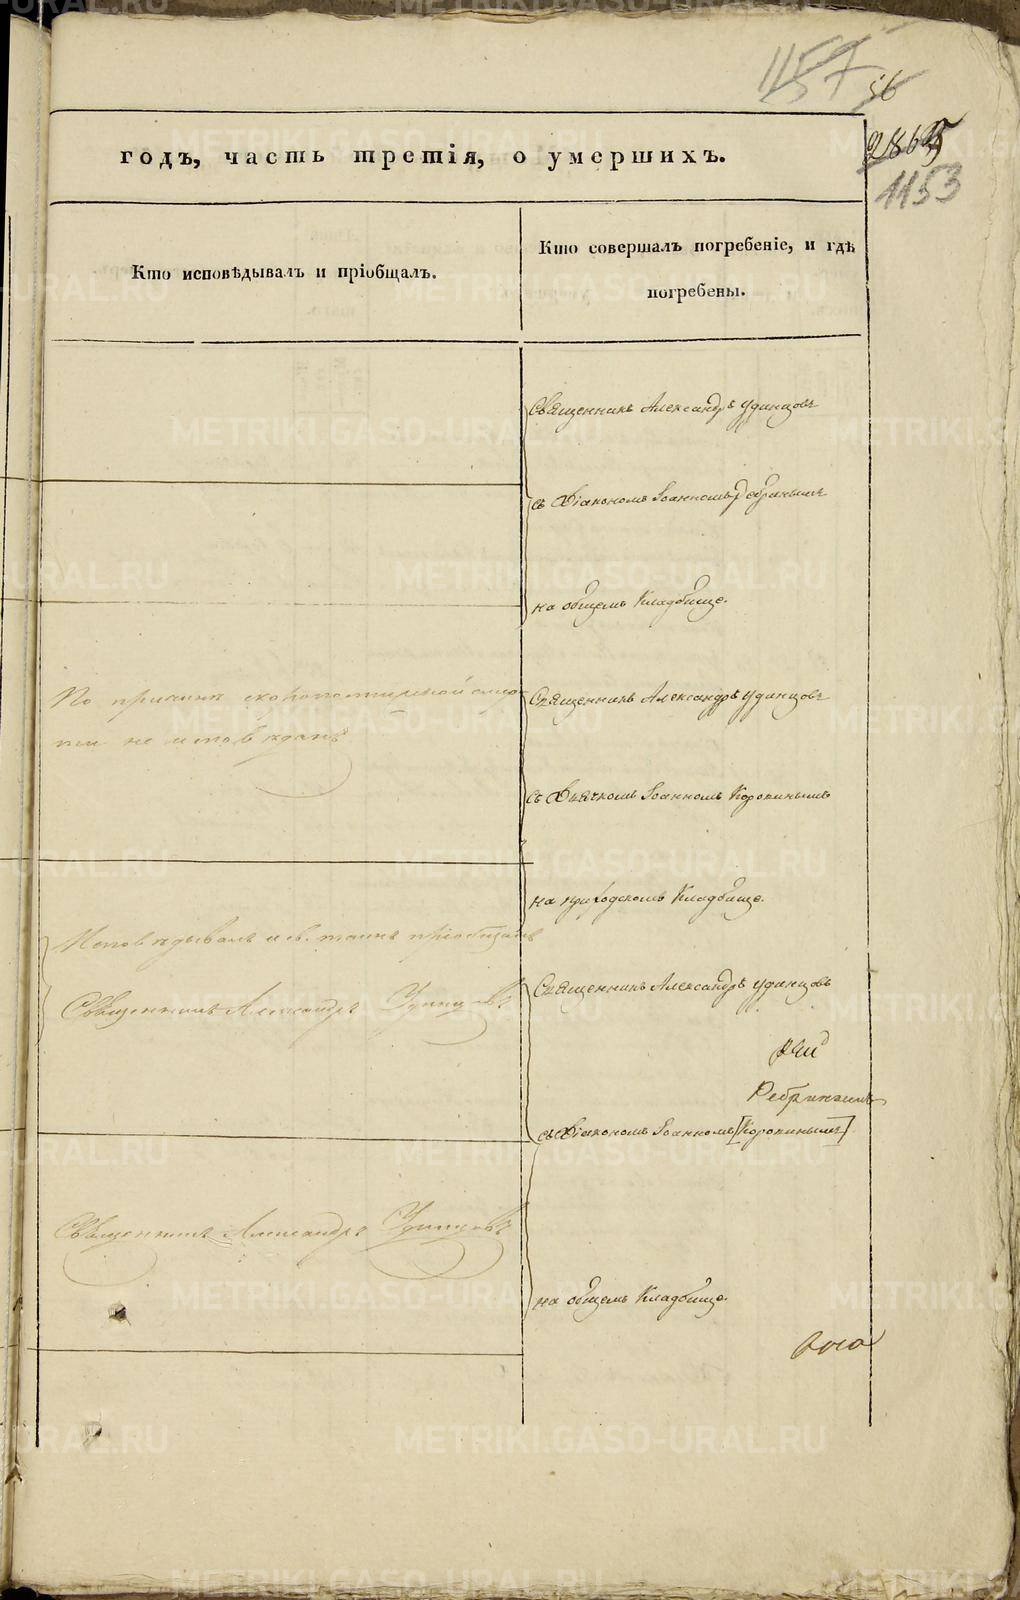 1157
56
2863
1153
годъ, часть третія, о умершихъ.
Кто исповѣдывалъ и пріобщалъ.
Кто совершалъ погребеніе, и гдѣ
погребены.
Священникъ Александръ Удинцовъ
съ Діакономъ Іоанномъ Ребринымъ
на общемъ Кладбище.
По причинѣ скоропостижной смер
ти не исповѣданъ
Священникъ Александръ Удинцовъ
съ Дьячкомъ Іоанномъ Корокинымъ
на приходскомъ Кладбище.
Исповѣдывалъ и св. таинъ пріобщалъ
Священникъ Александръ Удинцовъ
Священникъ Александръ Удинцовъ
Ребринымъ
съ Діакономъ Іоанномъ [Корокинымъ]
Священникъ Александръ Удинцовъ
на общемъ Кладбище.
METRIKI.GASO-URAL.RU